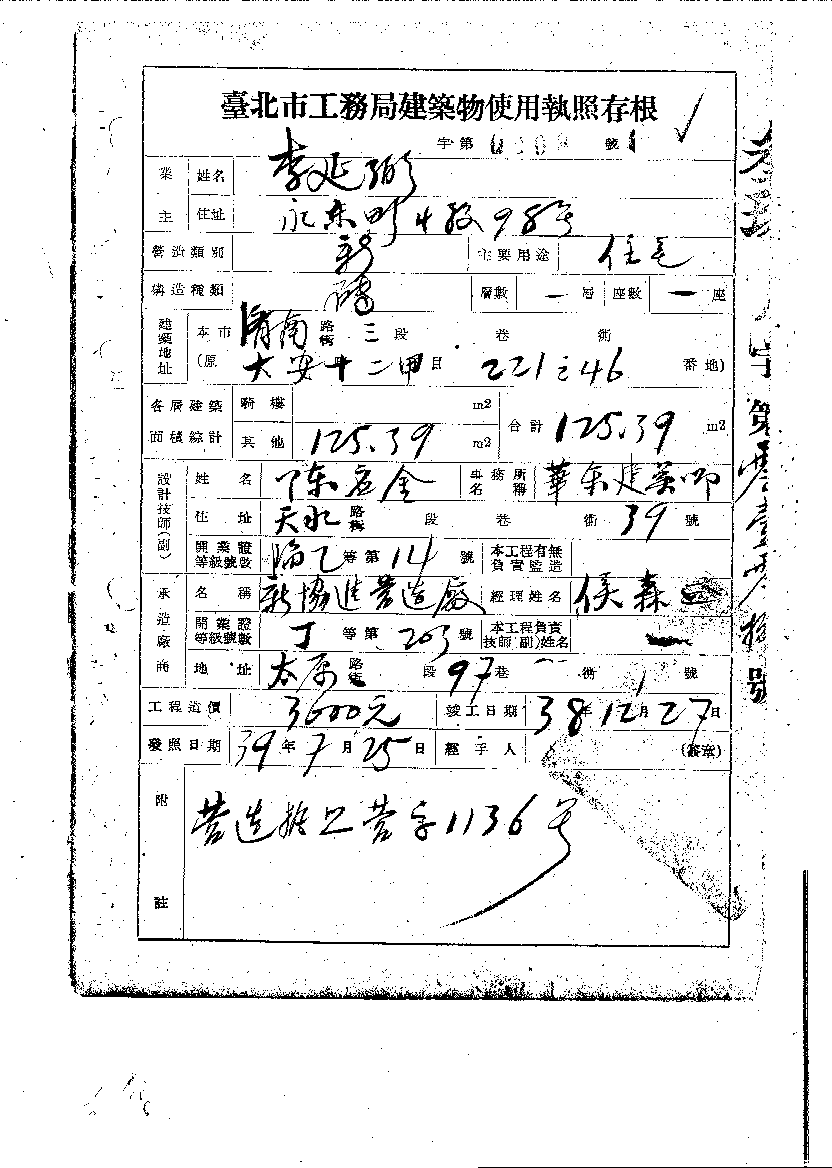 臺北市工務局建築物使用執照存根
字第 0109 號
業主 姓名 李延
住址 永東町4段98号
營造類別 新 主要用途 住宅
構造種類 磚 層數 一 層 座數 一 座
建築地址 本市 濟南路街 三 段 巷 衖
(原 大安十二甲目 221之46 番地)
各層建築面積綜計 騎樓 m2 合計 125.39 m2
其他 125.39 m2
設計技師(副) 姓名 陳 金 事務所名稱 華 建築師
住址 天水路街 段 巷 衖 39 號
開業證等級號數 臨乙 等第 14 號 本工程有無負實監造
承造廠商 名稱 新協進營造廠 經理姓名 侯森
開業證等級號數 丁 等第 203 號 本工程負責技師(副)姓名
地址 太原路街 段 97 巷 衖 1 號
工程造價 3000元 竣工日期 38年12月27日
發照日期 39年7月25日 經手人 (簽章)
附註 营造執工营字1136号
字第零壹零 號